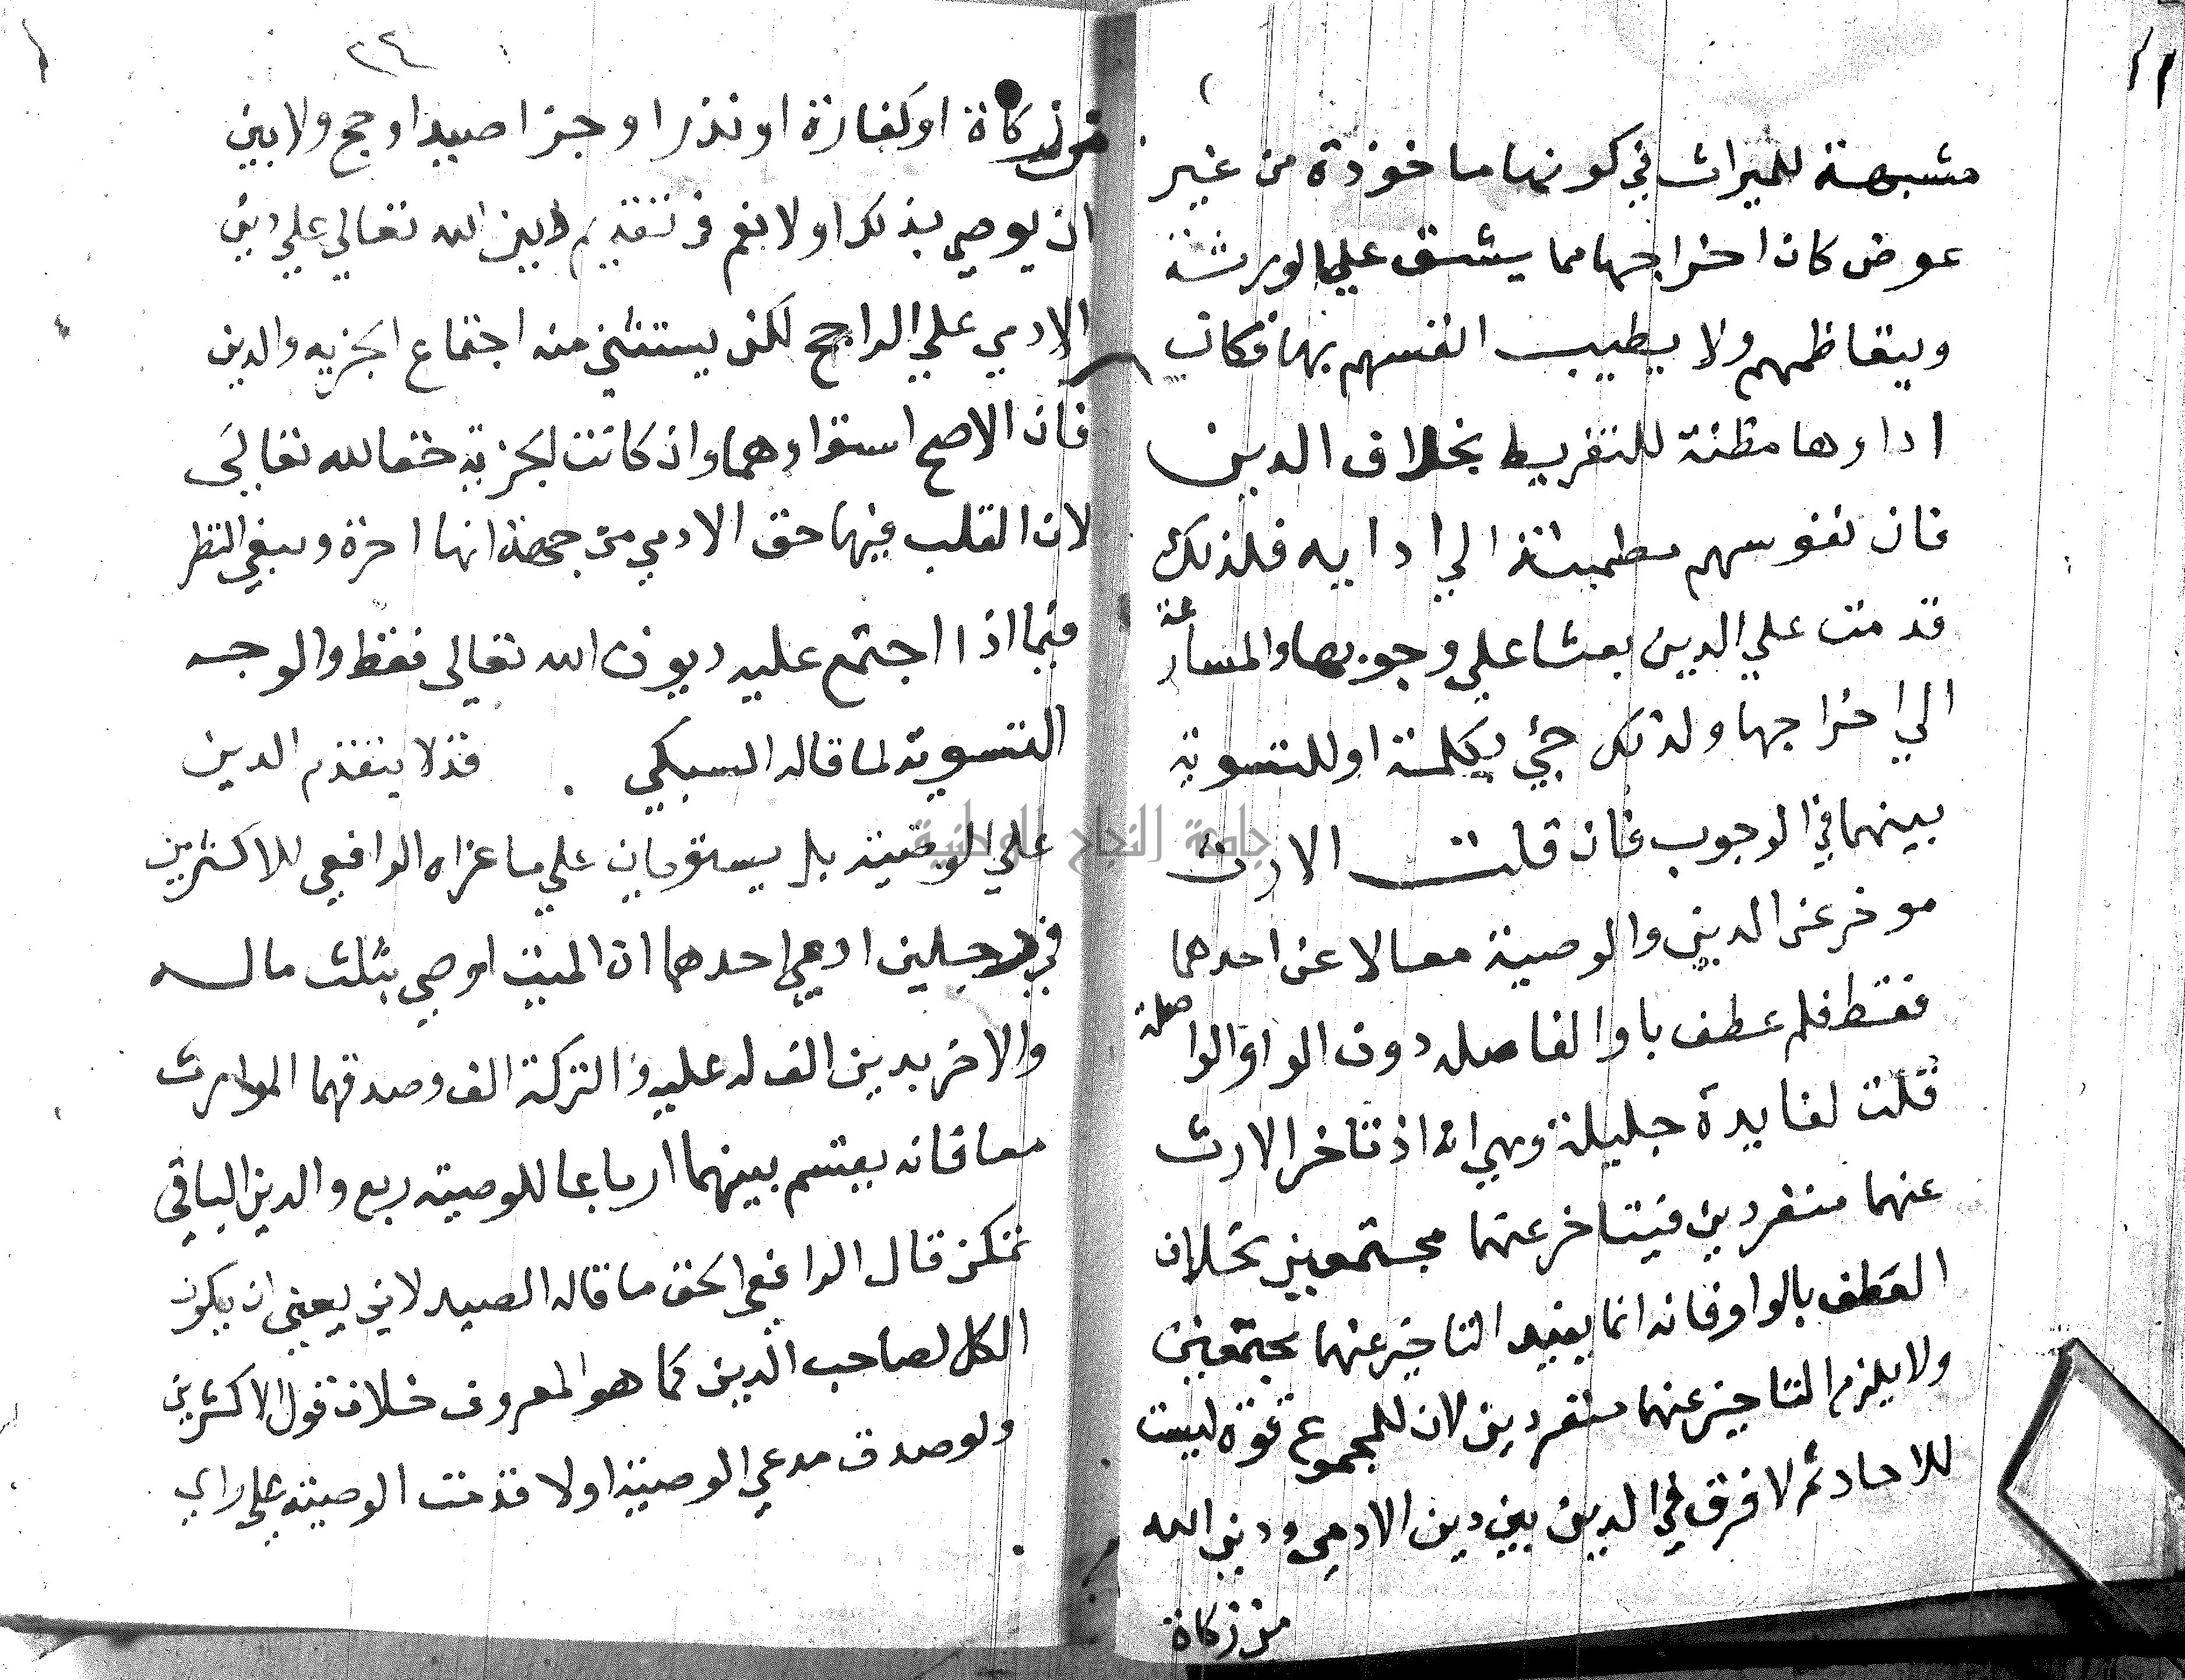 مشبهة للميراث في كونها ماخوذة من غير
عوض كان اخراجها مما يشق علي الورثة
ويتعاظمهم ولا يطيب انفسهم بها فكان
اداوها مظنة للتفريط بخلاف الدين
فان نفوسهم مطمئنة الي ادايه فلذلك
قدمت علي الدين بعثا علي وجوبها والمسارعة
الي اخراجها ولذلك جئ بكلمة او للتسوية
بينهما في الوجوب فان قلت الارث
موخر عن الدين والوصية معا لا عن احدهما
فقط فلم عطف باو الفاصله دون الواو الواصلة
قلت لفايدة جليلة وهي انه اذ تاخر الارث
عنهما منفردين فيتاخر عنهما مجتمعين بخلاف
العطف بالواو فانه انما يفيد التاخير عنهما مجتمعين
ولا يلزم التاخير عنهما منفردين لان للمجموع قوة ليست
للاحاد ثم لا فرق في الدين بين دين الادمي ودين الله
من زكاة
٢٤
من زكاة او كفارة او نذر او جزا صيد او حج ولا بين
ان يوصي بذلك او لا نعم في تقديم دين الله تعالي علي دين
الادمي علي الراجح لكن يستثني منه اجتماع الجزيه والدين
فان الاصح استواوهما وان كانت الجزية حقا لله تعالي
لان القلب فيها حق الادمي من جهة انها اجرة وينبغي النظر
فيما اذا اجتمع عليه ديون الله تعالي فقط والوجه
التسوية لما قاله السبكي . قد لا يتقدم الدين
علي الوصية بل يستويان علي ما عزاه الرافعي للاكثرين
في رجلين ادعي احدهما ان الميت اوصي بثلث ماله
والاخر بدين الف له عليه والتركة الف وصدقهما الوارث
معا فانه يقتسم بينهما ارباعا للوصية ربع والدين الباقي
لكن قال الرافعي الحق ما قاله الصيدلاني يعني ان يكون
الكل لصاحب الدين كما هو المعروف خلاف قول الاكثرين
ولو صدق مدعي الوصية اولا قدمت الوصية علي راي
جامعة النجاح الوطنية